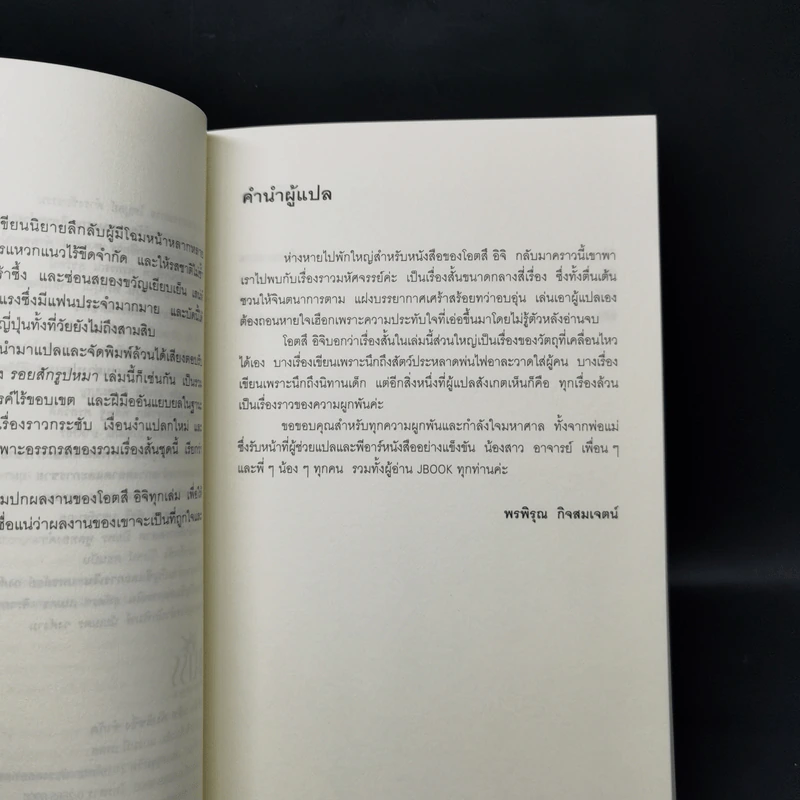 ขียนนิยายลึกลับผู้มีโฉมหน้าหลากหลาย
รแหวกแนวไร้ขีดจำกัด และให้รสชาติไม่ซ้ำ
ร้าซึ้ง และซ่อนสยองขวัญเยียบเย็น
แรงซึ่งมีแฟนประจำมากมาย และบัดนี้ได้
ญี่ปุ่นทั้งที่วัยยังไม่ถึงสามสิบ
นำมาแปลและจัดพิมพ์ล้วนได้เสียงตอบรับ
ง รอยสักรูปหมา เล่มนี้ก็เช่นกัน เป็นรวม
รค์ไร้ขอบเขต และฝีมืออันแยบยลในฐานะ
เรื่องราวกระชับ เงื่อนงำแปลกใหม่ และ
พาะอรรถรสของรวมเรื่องสั้นชุดนี้ เรียกว่า
มปกผลงานของโอตสึ อิจิทุกเล่ม เพื่อให้
ชื่อแน่ว่าผลงานของเขาจะเป็นที่ถูกใจและ
คำนำผู้แปล
ห่างหายไปพักใหญ่สำหรับหนังสือของโอตสึ อิจิ กลับมาคราวนี้เขาพา
เราไปพบกับเรื่องราวมหัศจรรย์ค่ะ เป็นเรื่องสั้นขนาดกลางสี่เรื่อง ซึ่งทั้งตื่นเต้น
ชวนให้จินตนาการตาม แฝงบรรยากาศเศร้าสร้อยทว่าอบอุ่น เล่นเอาผู้แปลเอง
ต้องถอนหายใจเฮือกเพราะความประทับใจที่เอ่อขึ้นมาโดยไม่รู้ตัวหลังอ่านจบ
โอตสึ อิจิบอกว่าเรื่องสั้นในเล่มนี้ส่วนใหญ่เป็นเรื่องของวัตถุที่เคลื่อนไหว
ได้เอง บางเรื่องเขียนเพราะนึกถึงสัตว์ประหลาดพ่นไฟอาละวาดใส่ผู้คน บางเรื่อง
เขียนเพราะนึกถึงนิทานเด็ก แต่อีกสิ่งหนึ่งที่ผู้แปลสังเกตเห็นก็คือ ทุกเรื่องล้วน
เป็นเรื่องราวของความผูกพันค่ะ
ขอขอบคุณสำหรับทุกความผูกพันและกำลังใจมหาศาล ทั้งจากพ่อแม่
ซึ่งรับหน้าที่ผู้ช่วยแปลและพีอาร์หนังสืออย่างแข็งขัน น้องสาว อาจารย์ เพื่อน ๆ
และพี่ ๆ น้อง ๆ ทุกคน รวมทั้งผู้อ่าน JBOOK ทุกท่านค่ะ
พรพิรุณ กิจสมเจตน์